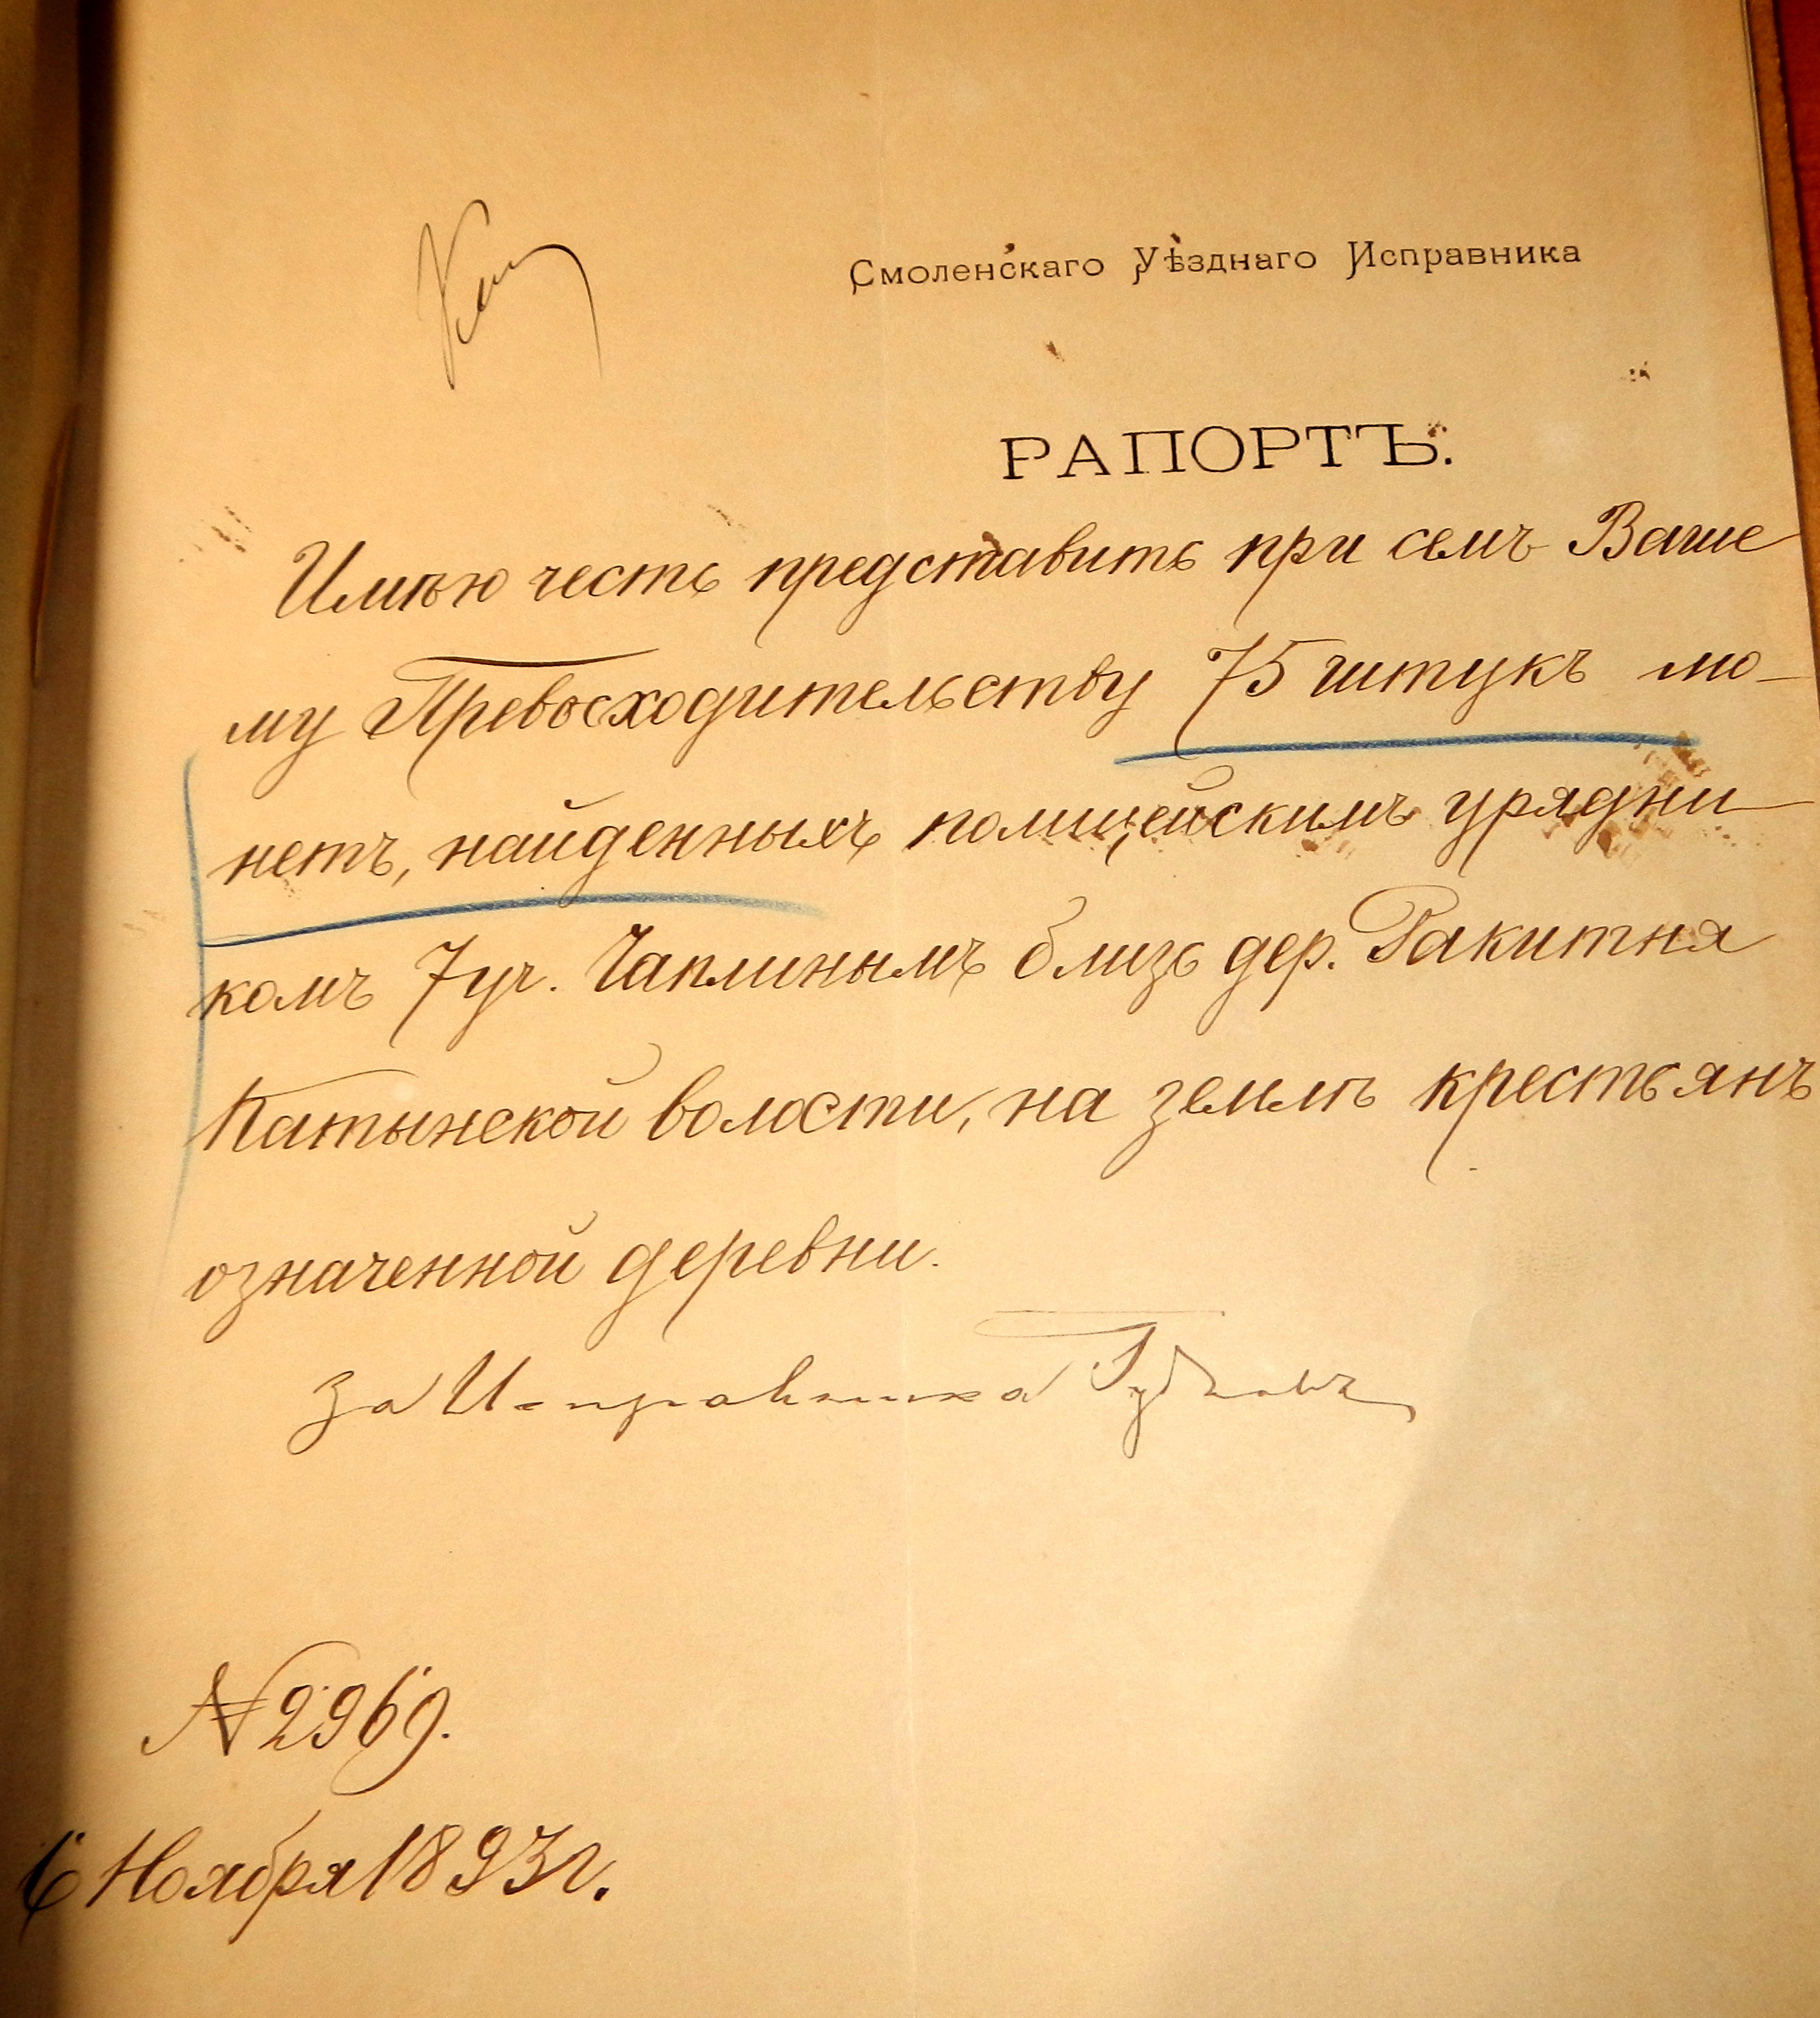 Смоленскаго Уѣзднаго Исправника
РАПОРТЪ.
Имѣю честь представить при семъ Ваше
му Превосходительству 75 штукъ мо-
нетъ, найденныхъ полицейскимъ урядни-
комъ 7 уч. Чаплинымъ близь дер. Ракитня
Катынской волости, на землѣ крестьянъ
означенной деревни.
За Исправника
№ 2969.
6 Ноября 1893 г.